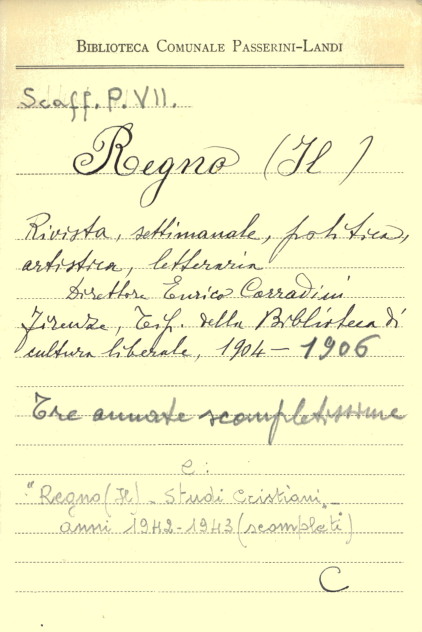 BIBLIOTECA COMUNALE PASSERINI-LANDI
Scaff. P. VII.
Regno (Il)
Rivista, settimanale, politica,
artistica, letteraria
Direttore Enrico Corradini
Firenze, Tip. della Biblioteca di
cultura liberale, 1904 - 1906
Tre annate scompletissime
e:
"Regno (Il) - Studi Cristiani" -
anni 1942-1943 (scompleti)
C